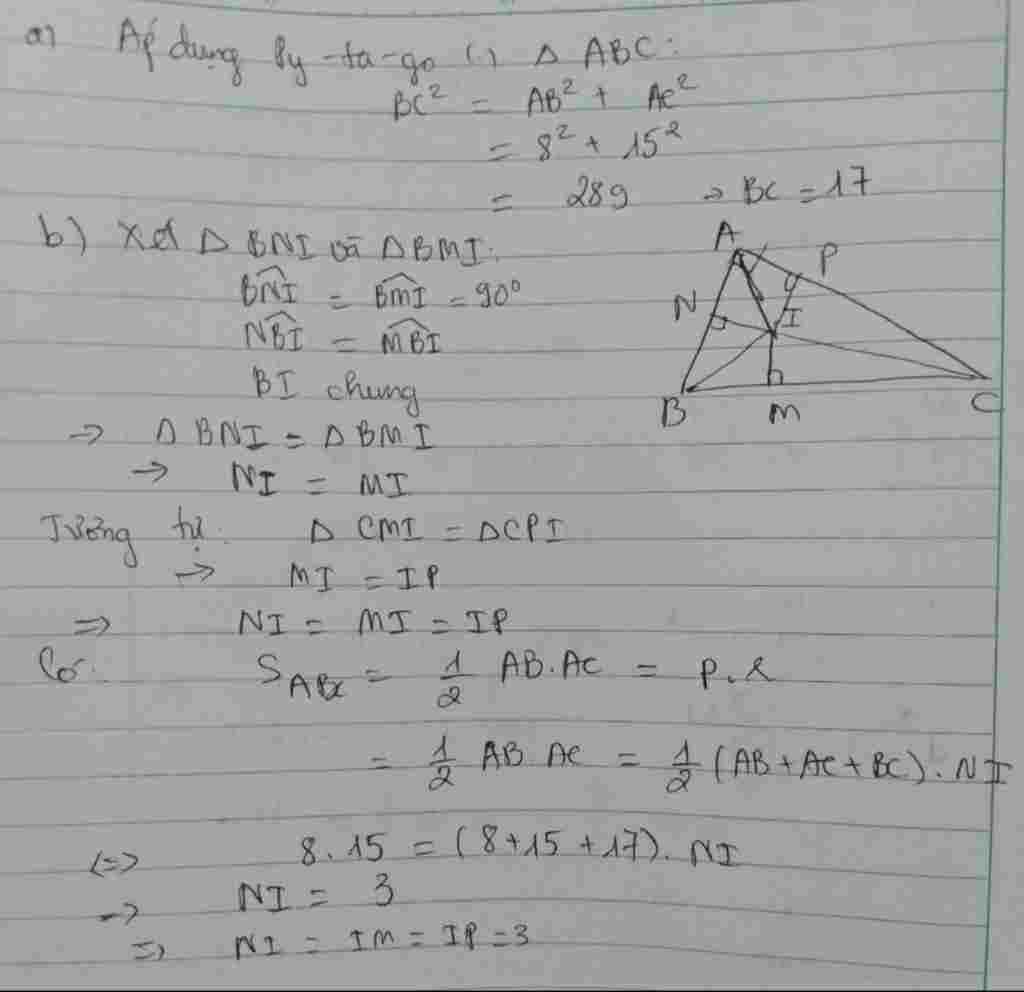 a) Áp dụng Py-ta-go (.) Δ ABC:
BC² = AB² + AC²
= 8² + 15²
= 289 → BC = 17
b) Xét Δ BNI và Δ BMI:
\widehat{BNI} = \widehat{BMI} = 90°
\widehat{NBI} = \widehat{MBI}
BI chung
→ Δ BNI = Δ BMI
→ NI = MI
Tương tự: Δ CMI = Δ CPI
→ MI = IP
⇒ NI = MI = IP
Có: S_{ABC} = \frac{1}{2} AB.AC = p.r
= \frac{1}{2} AB AC = \frac{1}{2} (AB + AC + BC).NI
<=> 8.15 = (8+15+17).NI
→ NI = 3
⇒ NI = IM = IP = 3
A
P
N
I
B
M
C